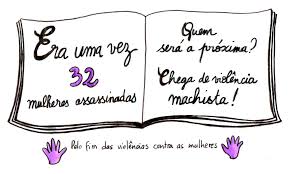 Era uma vez
32
mulheres assassinadas
Quem
será a próxima?
Chega de violência
machista!
Pelo fim das violências contra as mulheres